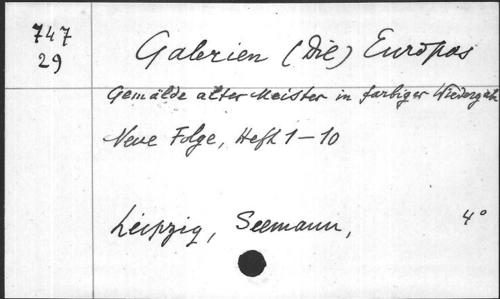 747
29
Galerien (Die) Europas
Gemälde alter Meister in farbiger Wiedergabe
Neue Folge, Heft 1-10
Leipzig, Seemann, 4°